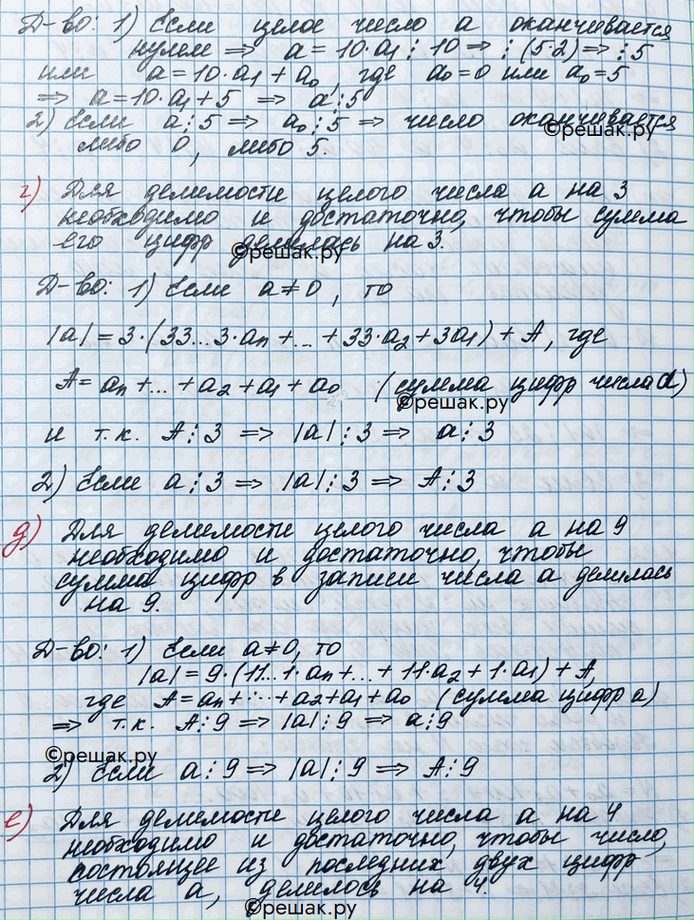 Д-во: 1) Если целое число a оканчивается
нулем ⇒ a = 10·a₁ ⋮ 10 ⇒ ⋮ (5·2) ⇒ ⋮ 5
или a = 10·a₁ + a₀, где a₀ = 0 или a₀ = 5
⇒ a = 10·a₁ + 5 ⇒ a ⋮ 5
2) Если a ⋮ 5 ⇒ a₀ ⋮ 5 ⇒ число оканчивается
©решак.ру
либо 0, либо 5.
г) Для делимости целого числа a на 3
необходимо и достаточно, чтобы сумма
его цифр делилась на 3.
©решак.ру
Д-во: 1) Если a ≠ 0, то
|a| = 3·(33...3·aₙ + ... + 33·a₂ + 3a₁) + A, где
A = aₙ + ... + a₂ + a₁ + a₀ (сумма цифр числа a)
©решак.ру
и т.к. A ⋮ 3 ⇒ |a| ⋮ 3 ⇒ a ⋮ 3
2) Если a ⋮ 3 ⇒ |a| ⋮ 3 ⇒ A ⋮ 3
д) Для делимости целого числа a на 9
необходимо и достаточно, чтобы
сумма цифр в записи числа a делилась
на 9.
Д-во: 1) Если a ≠ 0, то
|a| = 9·(11...1·aₙ + ... + 11·a₂ + 1·a₁) + A,
где A = aₙ + ... + a₂ + a₁ + a₀ (сумма цифр a)
⇒ т.к. A ⋮ 9 ⇒ |a| ⋮ 9 ⇒ a ⋮ 9
©решак.ру
2) Если a ⋮ 9 ⇒ |a| ⋮ 9 ⇒ A ⋮ 9
е) Для делимости целого числа a на 4
необходимо и достаточно, чтобы число,
состоящее из последних двух цифр
числа a, делилось на 4.
©решак.ру